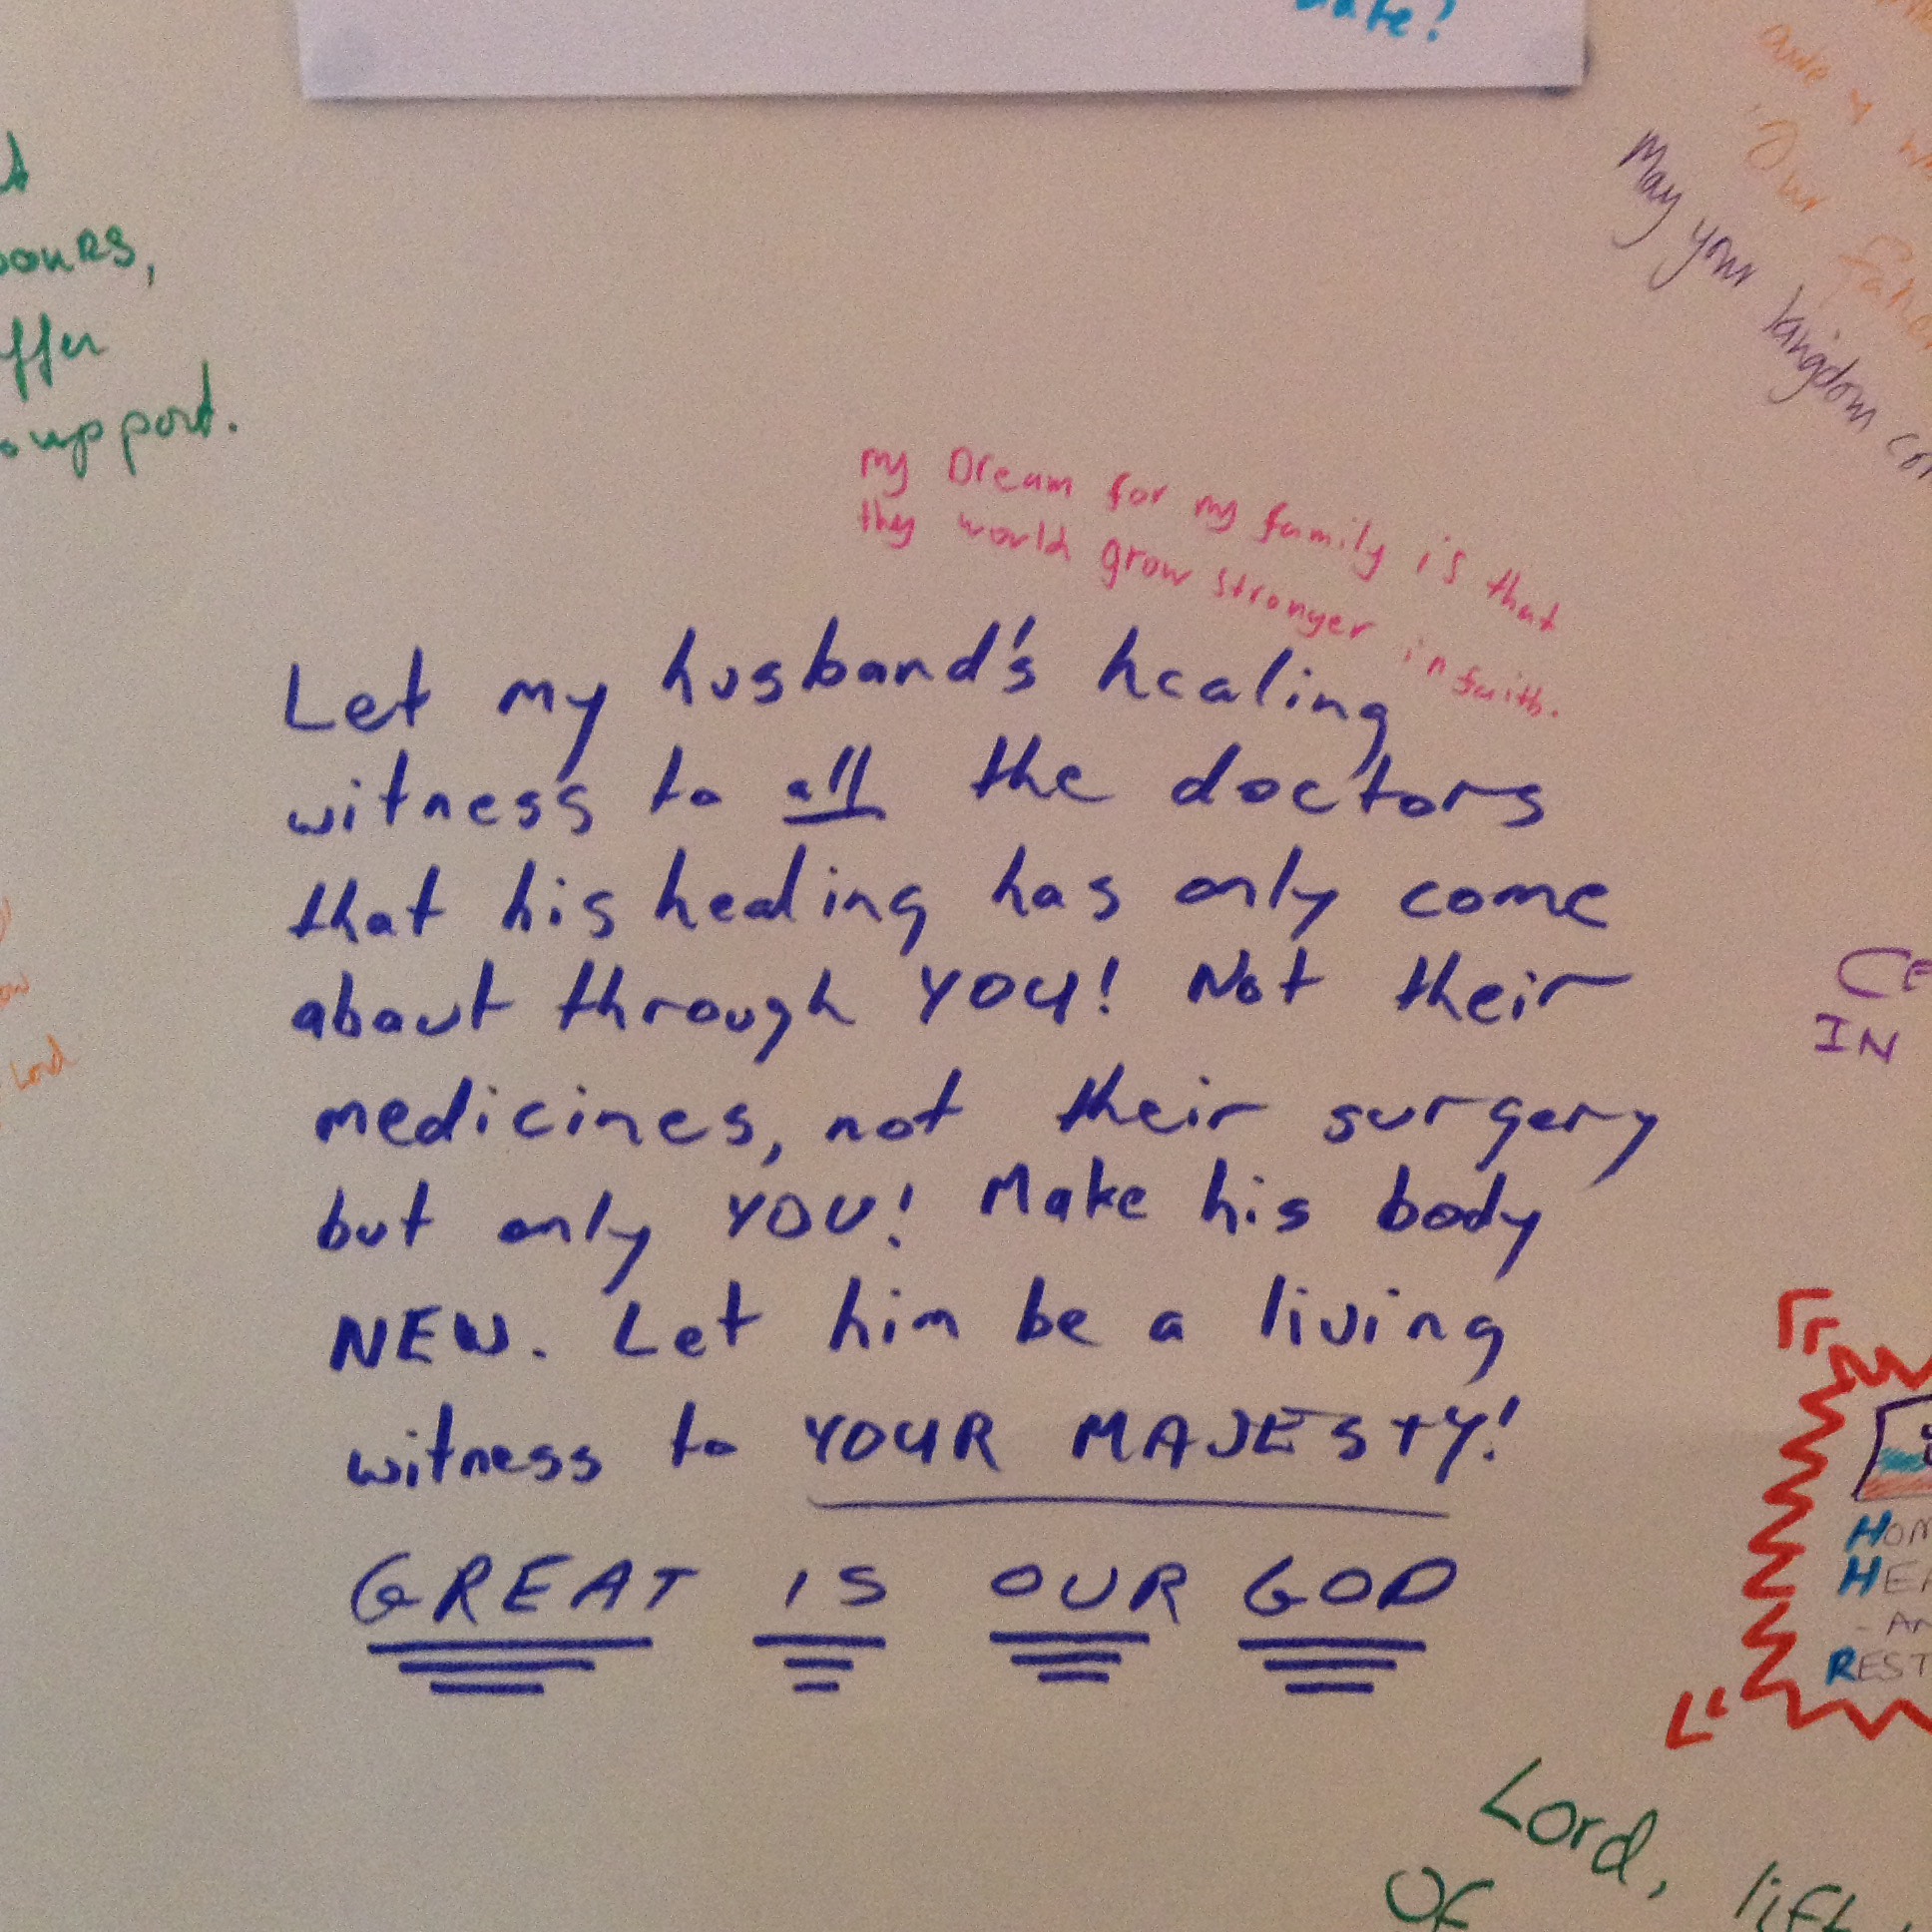 May your kingdom
my Dream for my family is that
they world grow stronger in faith.
Let my husband's healing
witness to all the doctors
that his healing has only come
about through YOU! Not their
medicines, not their surgery
but only YOU! Make his body
NEW. Let him be a living
witness to YOUR MAJESTY!
GREAT IS OUR GOD
support.
Lord
IN
Lord, lift
OF